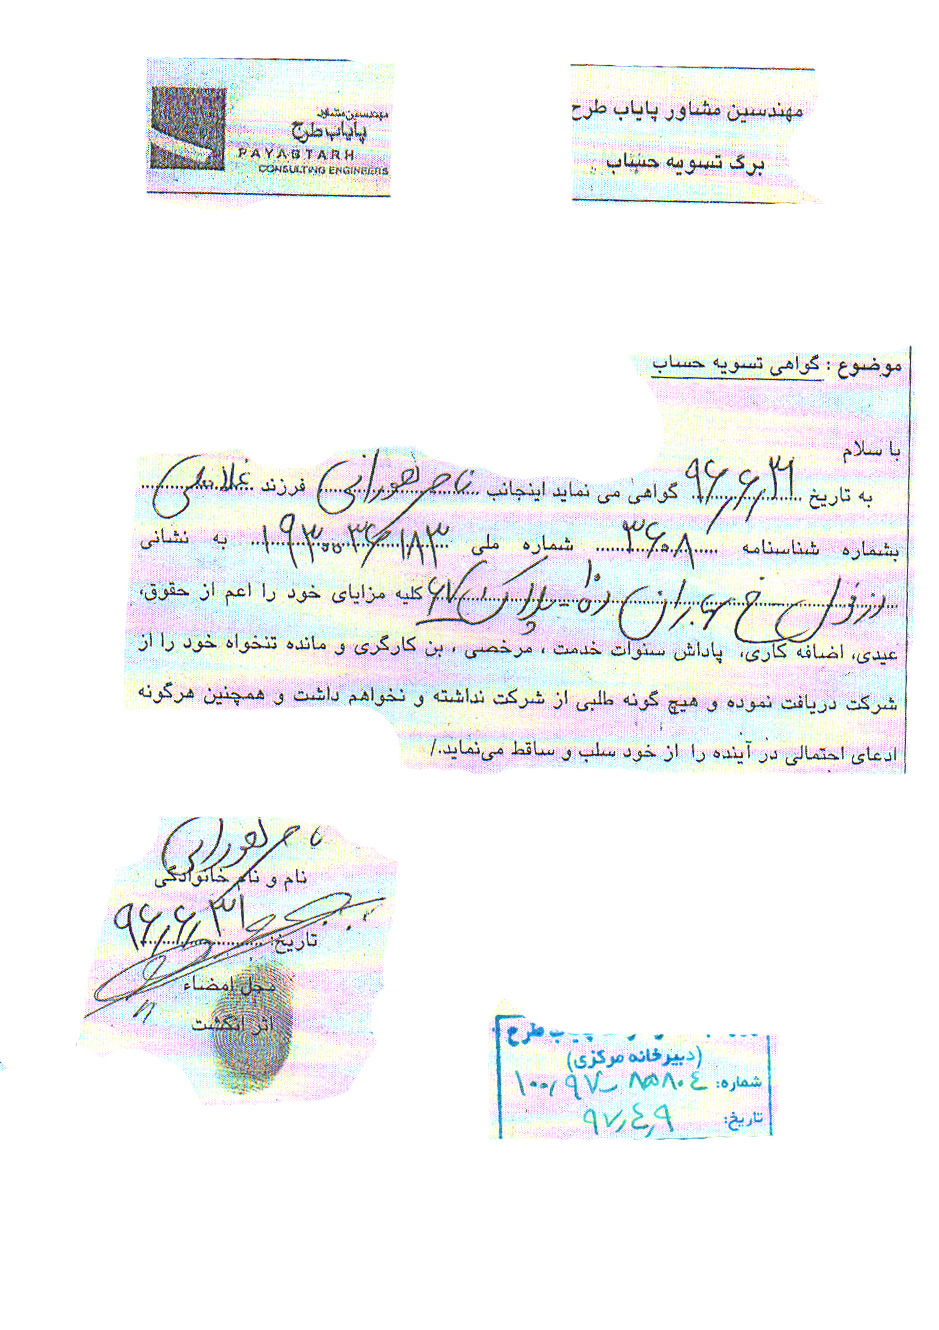 مهندسین مشاور
پایاب طرح
PAYABTARH
CONSULTING ENGINEERS
مهندسین مشاور پایاب طرح
برگ تسویه حساب
موضوع : گواهی تسویه حساب
با سلام
به تاریخ ۹۶/۶/۳۱ گواهی می نماید اینجانب ناصر فرزند غلامعلی
بشماره شناسنامه ۳۶۰۸ شماره ملی ۱۹۳۰۰۳۶۱۸۳ به نشانی
دزفول خ پلاک ۶۷ کلیه مزایای خود را اعم از حقوق،
عیدی، اضافه کاری، پاداش سنوات خدمت ، مرخصی ، بن کارگری و مانده تنخواه خود را از
شرکت دریافت نموده و هیچ گونه طلبی از شرکت نداشته و نخواهم داشت و همچنین هرگونه
ادعای احتمالی در آینده را از خود سلب و ساقط می‌نماید./
ناصر
نام و نام خانوادگی
تاریخ: ۹۶/۶/۳۱
محل امضاء
اثر انگشت
پایاب طرح
(دبیرخانه مرکزی)
شماره: ۱۰۰/۹۷-۸۵۸۰۴
تاریخ: ۹۷/۴/۹